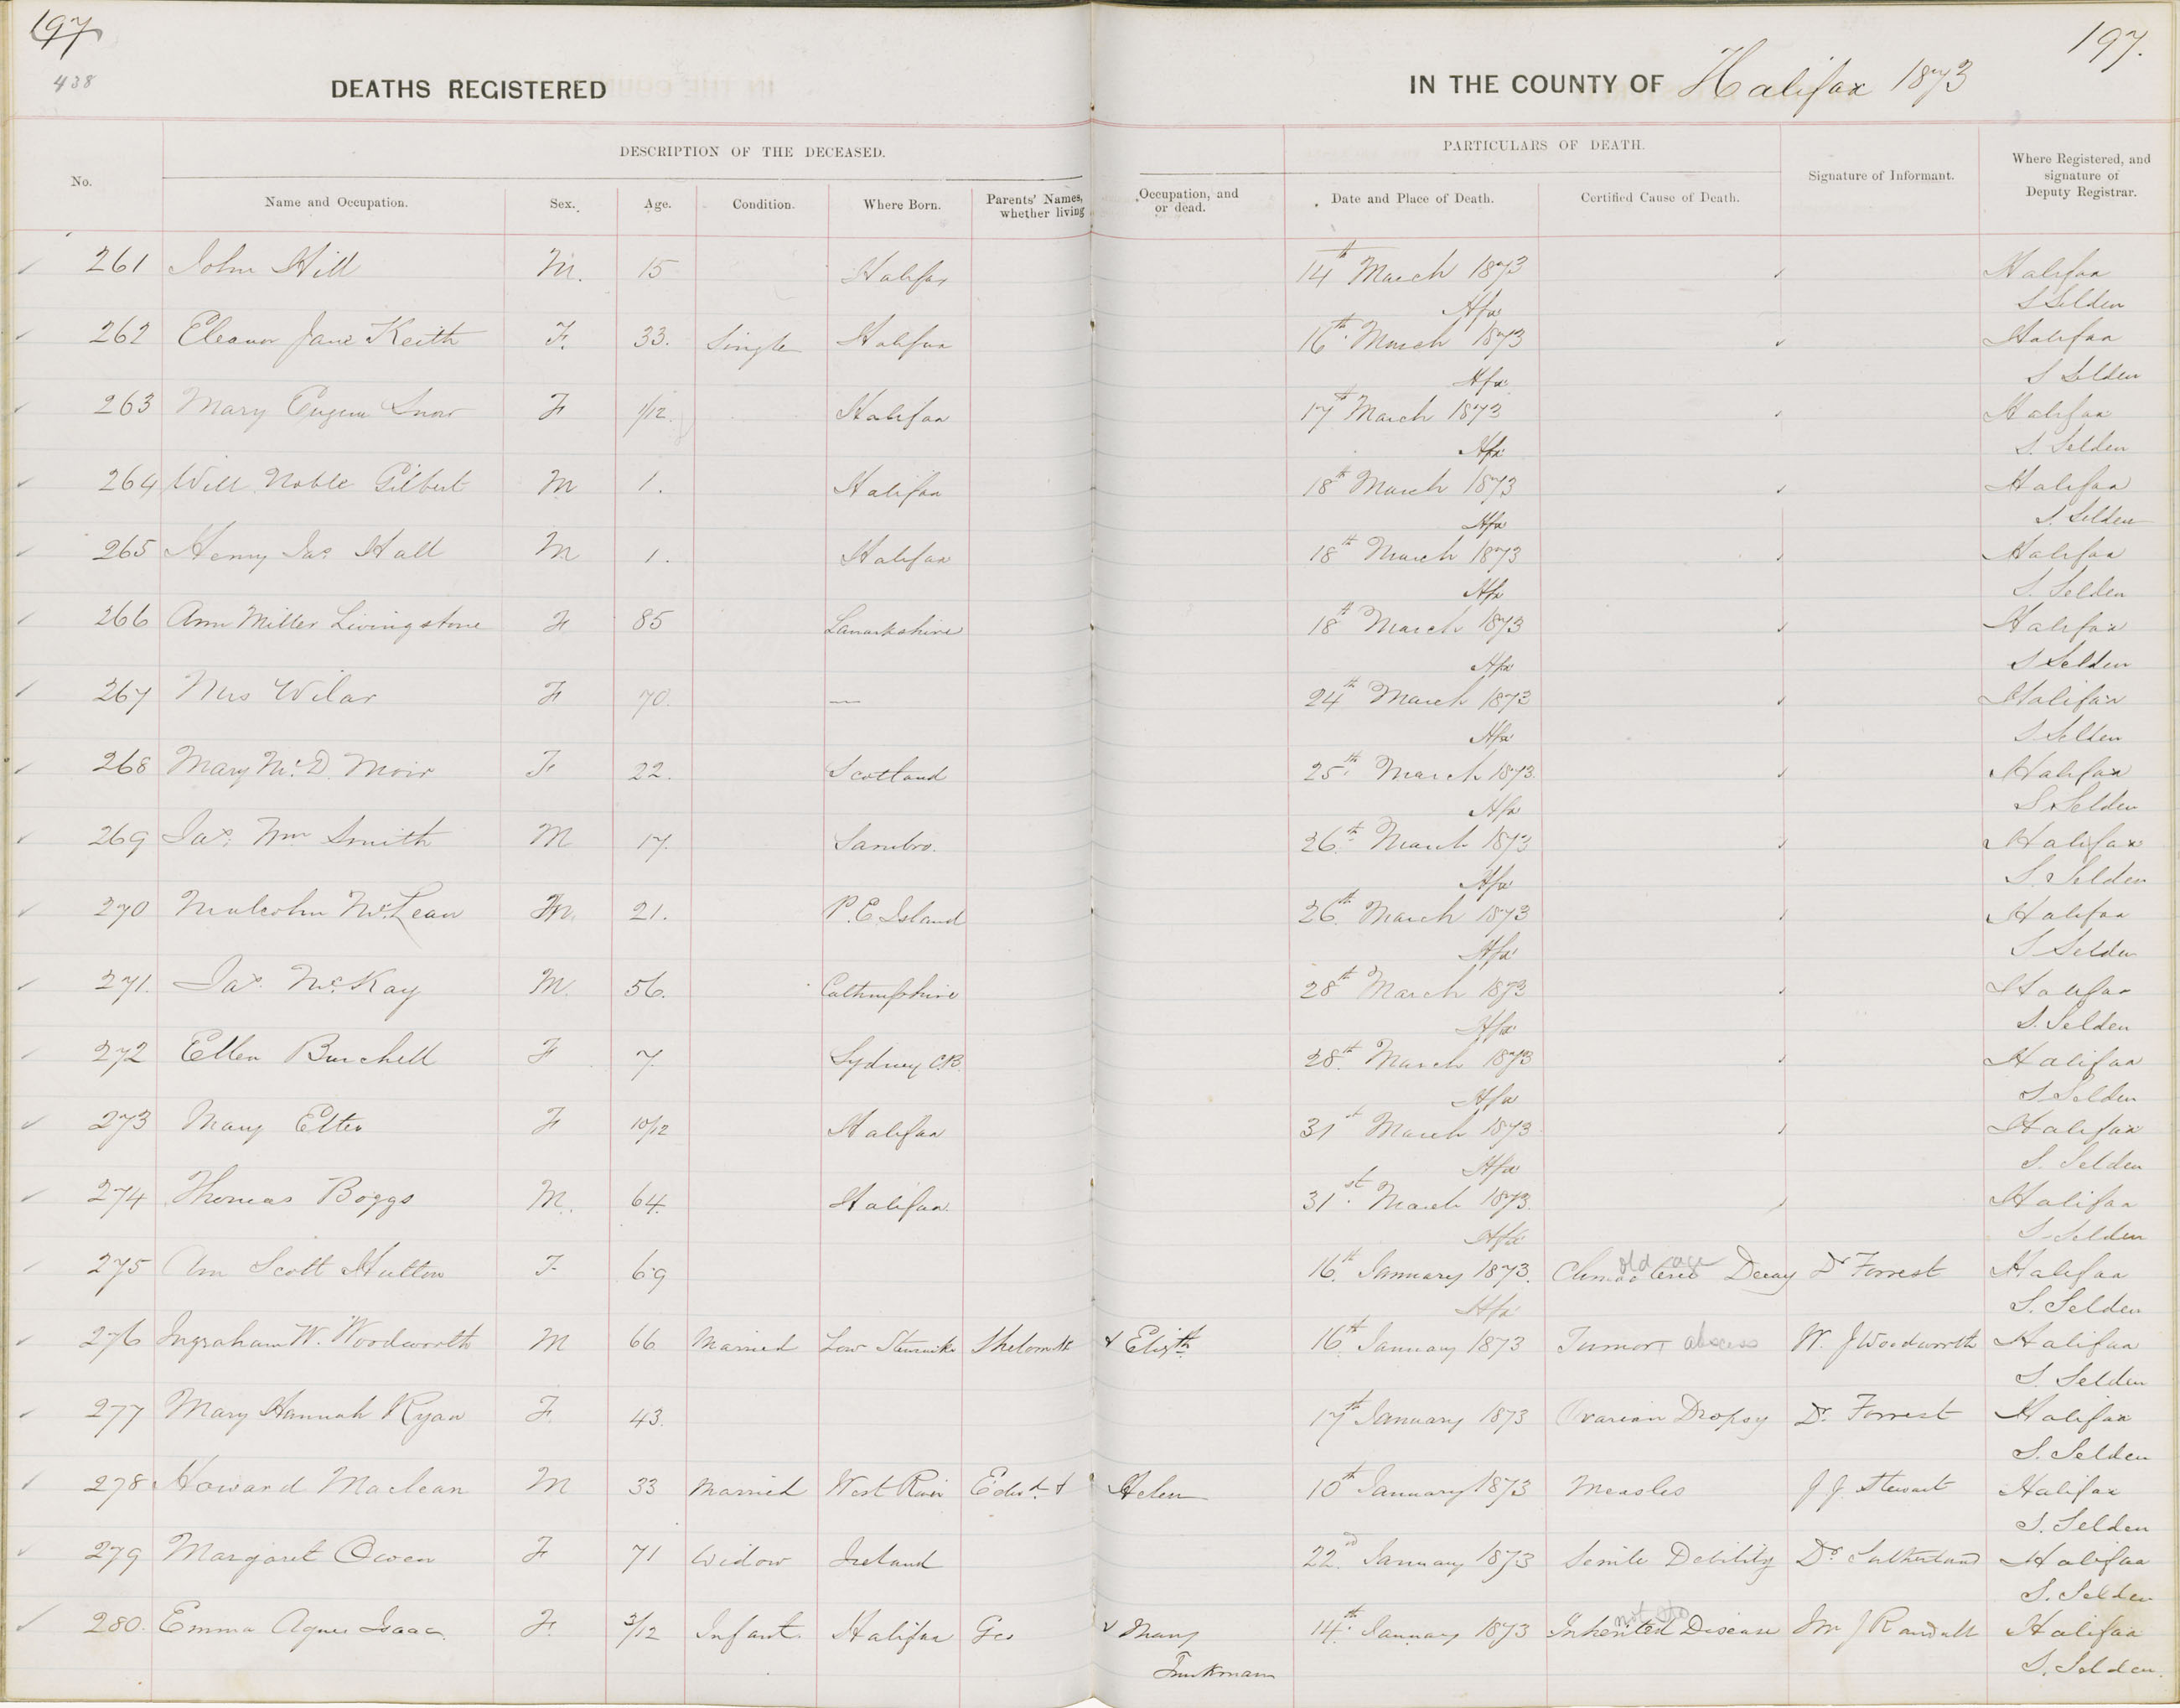 197
197.
438
DEATHS REGISTERED
IN THE COUNTY OF Halifax 1873
DESCRIPTION OF THE DECEASED.
PARTICULARS OF DEATH.
No.
Name and Occupation.
Sex.
Age.
Condition.
Where Born.
Parents' Names, whether living
Occupation, and or dead.
Date and Place of Death.
Certified Cause of Death.
Signature of Informant.
Where Registered, and signature of Deputy Registrar.
261 John Hill M. 15 Halifax 14th March 1873 Halifax
Hfx S Selden
262 Eleanor Jane Keith F. 33. Single Halifax 16th March 1873 Halifax
Hfx S Selden
263 Mary Snow F 1/12 Halifax 17th March 1873 Halifax
Hfx S. Selden
264 Will Noble Gilbert M 1. Halifax 18th March 1873 Halifax
Hfx S. Selden
265 Henry Jas Hall M 1. Halifax 18th March 1873 Halifax
Hfx S. Selden
266 Ann Miller Livingstone F 85 Lanarkshire 18th March 1873 Halifax
Hfx S Selden
267 Mrs Wilar F 70. — 24th March 1873 Halifax
Hfx S Selden
268 Mary Mc.D. Moir F 22. Scotland 25th March 1873. Halifax
Hfx S Selden
269 Jas. Wm Smith M 17. Sambro. 26th March 1873 Halifax
Hfx S. Selden
270 Malcolm McLean M. 21. P.E. Island 26th March 1873 Halifax
Hfx S Selden
271. Jas. McKay M. 56. 28th March 1873 Halifax
Hfx S. Selden
272 Ellen Burchell F 7 Sydney C.B. 28th March 1873 Halifax
Hfx S Selden
273 Mary Elter F 10/12 Halifax 31st March 1873 Halifax
Hfx S. Selden
274 Thomas Boggs M. 64. Halifax 31st March 1873. Halifax
Hfx S Selden
old age
275 Ann Scott Hutton F 69 16th January 1873. Decay Dr Forrest Halifax
Hfx S. Selden
276 Ingraham W. Woodworth M 66 Married Low & Elizth 16th January 1873 Tumor abscess W. J Woodworth Halifax
S. Selden
277 Mary Hannah Ryan F. 43. 17th January 1873 Ovarian Dropsy Dr. Forrest Halifax
S. Selden
278 Howard Maclean M 33 Married West River Edwd. & Helen 10th January 1873 Measles J J. Stewart Halifax
S. Selden
279 Margaret Owen F 71 Widow Ireland 22nd January 1873 Senile Debility Dr Sutherland Halifax
S. Selden
280. Emma Agnes Isaac F. 3/12 Infant Halifax Geo & Mary 14th January 1873 Inherited Disease J Randall Halifax
S. Selden.